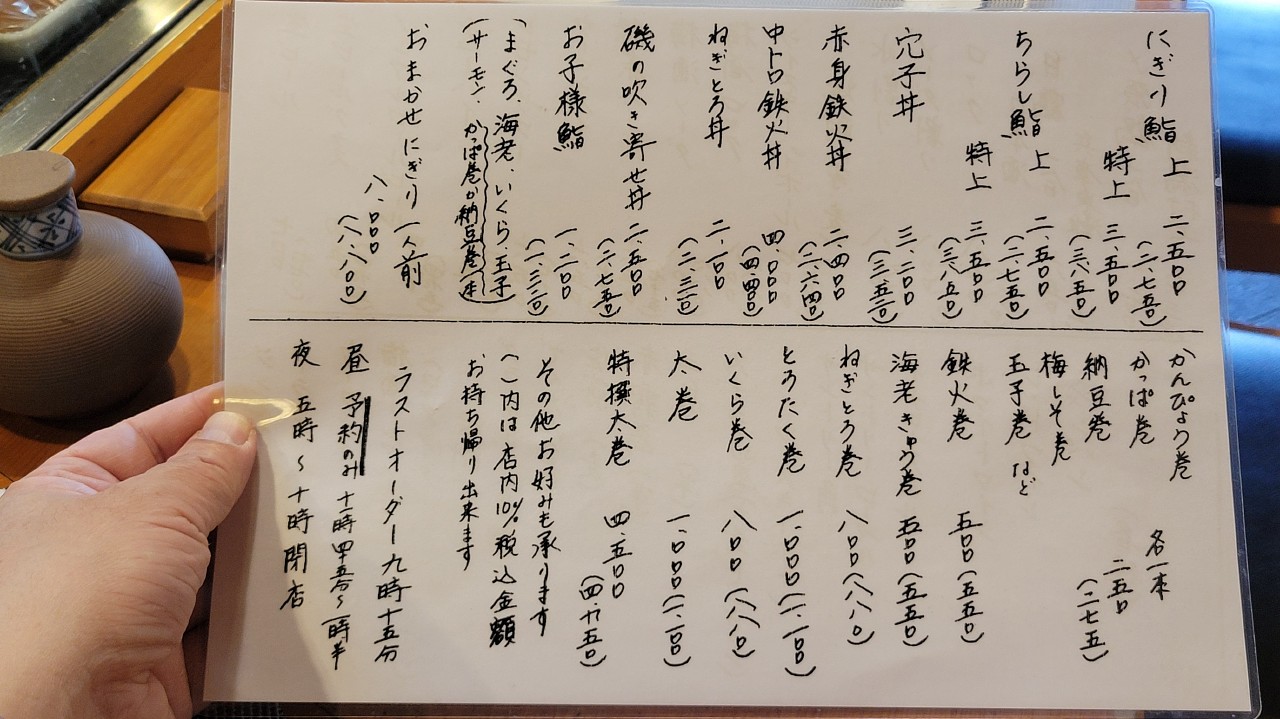 にぎり鮨 上 二、五〇〇
(二、七五〇)
特上 三、五〇〇
(三、八五〇)
ちらし鮨 上 二、五〇〇
(二、七五〇)
特上 三、五〇〇
(三、八五〇)
穴子丼 三、二〇〇
(三、五二〇)
赤身鉄火丼 二、四〇〇
(二、六四〇)
中トロ鉄火丼 四、〇〇〇
(四、四〇〇)
ねぎとろ丼 二、一〇〇
(二、三一〇)
磯の吹き寄せ丼 二、五〇〇
(二、七五〇)
お子様鮨 一、二〇〇
(一、三二〇)
(まぐろ、海老、いくら、玉子
サーモン、かっぱ巻か納豆巻一本)
おまかせにぎり一人前
八、〇〇〇
(八、八〇〇)
かんぴょう巻
かっぱ巻
納豆巻
梅しそ巻
玉子巻 など
各一本
二五〇
(二七五)
鉄火巻 五〇〇(五五〇)
海老きゅう巻 五〇〇(五五〇)
ねぎとろ巻 八〇〇(八八〇)
とろたく巻 一、〇〇〇(一、一〇〇)
いくら巻 八〇〇(八八〇)
太巻 一、〇〇〇(一、一〇〇)
特撰太巻 四、五〇〇
(四、九五〇)
その他お好みも承ります
( )内は店内10%税込金額
お持ち帰り出来ます
ラストオーダー九時十五分
昼 予約のみ 十一時四五分〜一時半
夜 五時〜十時閉店